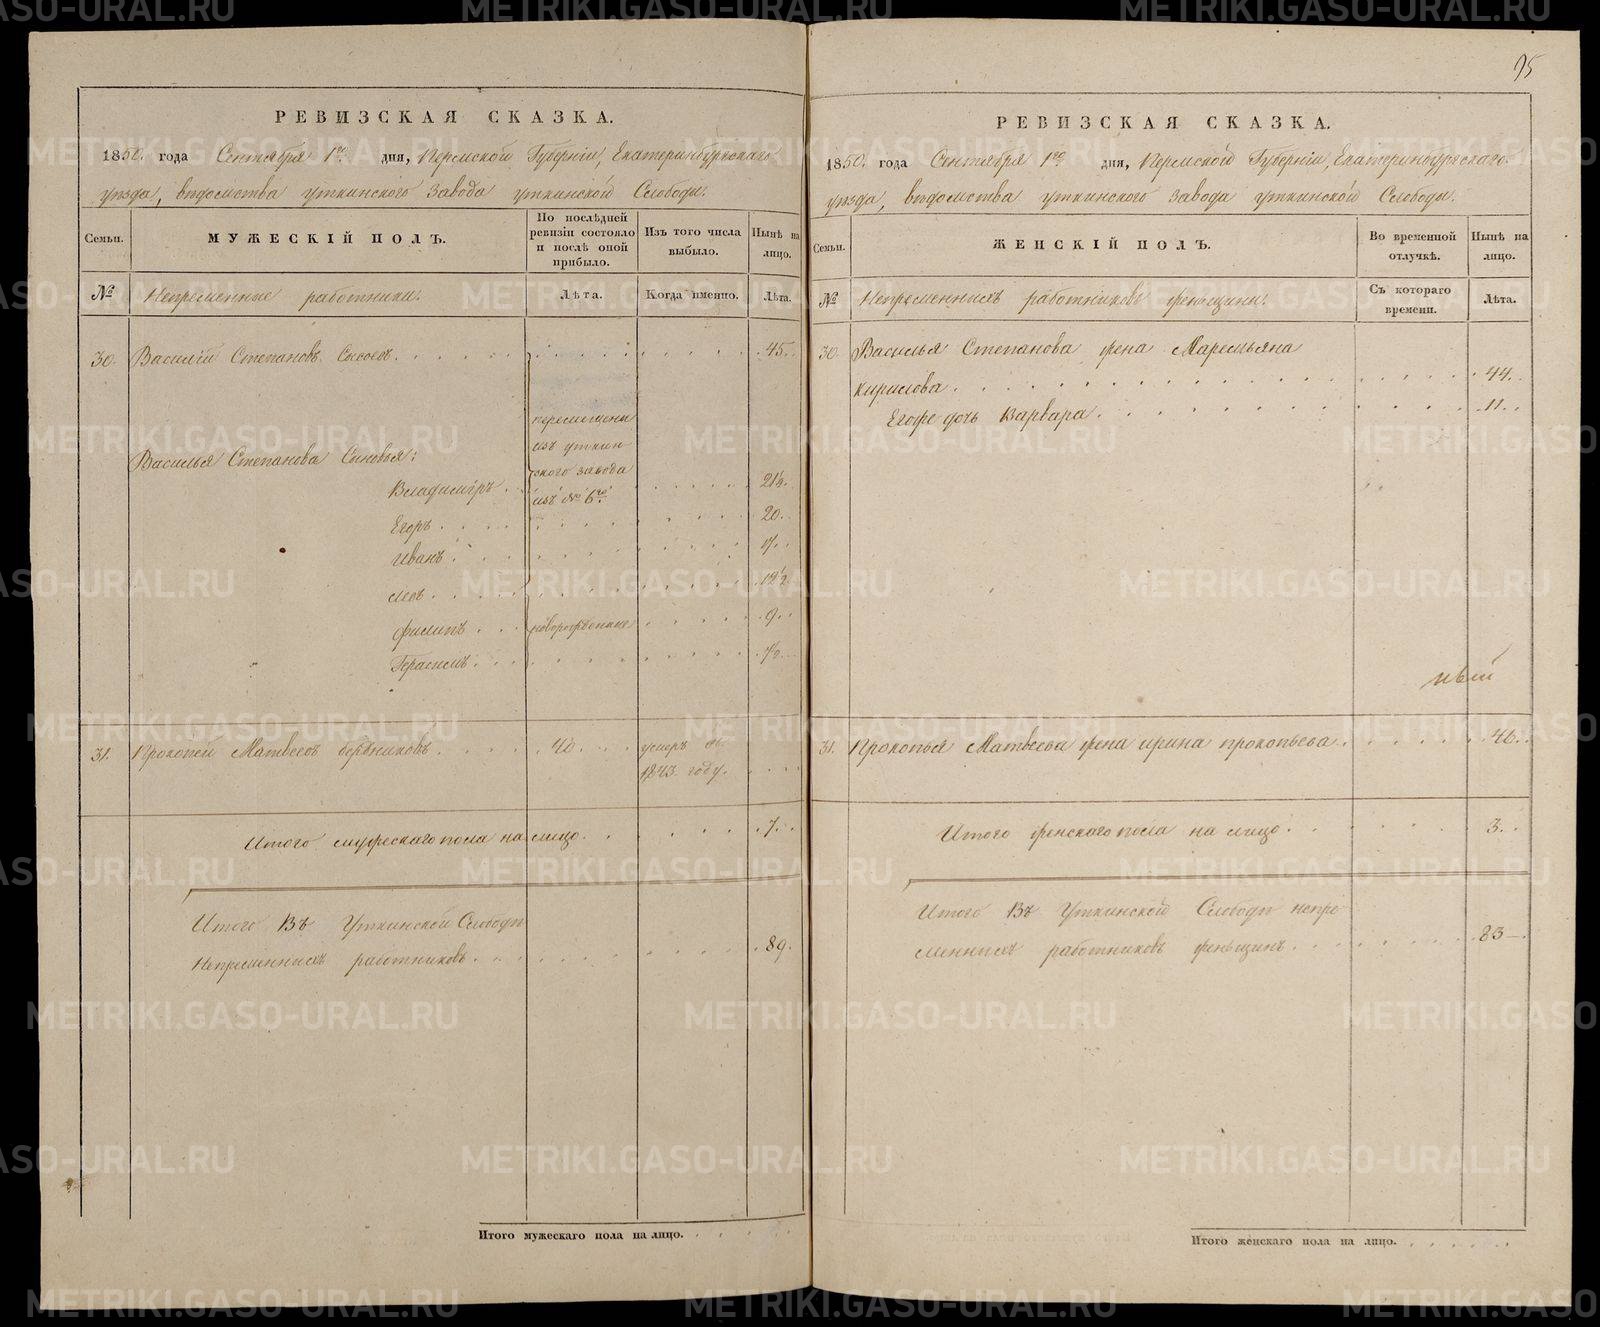 95
РЕВИЗСКАЯ СКАЗКА.
1850. года Сентября 1го дня, Пермской Губерніи, Екатеринбургскаго
уѣзда, вѣдомства Уткинского Завода Уткинской Слободы.
Семьи.
МУЖЕСКІЙ ПОЛЪ.
По послѣдней ревизіи состояло и послѣ оной прибыло.
Изъ того числа выбыло.
Нынѣ на лицо.
№
Непременные работники.
Лѣта.
Когда именно.
Лѣта.
30. Василій Степановъ Сысоев. 45.
перемещены
изъ уткин
ского завода
изъ № 6го
Василья Степанова Сыновья:
Владимиръ. 21½.
Егоръ. 20.
Иванъ. 17.
Лев. 12½
Филипъ. новорожденные 9.
Герасимъ.
31. Прокопей Матвеев 40. умеръ въ
1843. году.
Итого мужескаго пола на лицо. 7.
Итого Въ Уткинской Слободѣ
Непременныхъ работников. 89.
Итого мужескаго пола на лицо.
РЕВИЗСКАЯ СКАЗКА.
1850. года Сентября 1го дня, Пермской Губерніи, Екатеринбургскаго
уѣзда, вѣдомства Уткинского Завода Уткинской Слободы.
Семьи.
ЖЕНСКІЙ ПОЛЪ.
Во временной отлучкѣ.
Нынѣ на лицо.
№
Непременныхъ работниковъ женьщины.
Съ котораго времени.
Лѣта.
30. Василья Степанова жена Маремьяна
Кирилова. 44.
Егоже дочь Варвара. 11.
31. Прокопья Матвеева жена Ирина Прокопьева. 46.
Итого женскаго пола на лицо. 3.
Итого Въ Уткинской Слободѣ непре
менныхъ работниковъ женьщинъ. 83
Итого женскаго пола на лицо.
METRIKI.GASO-URAL.RU